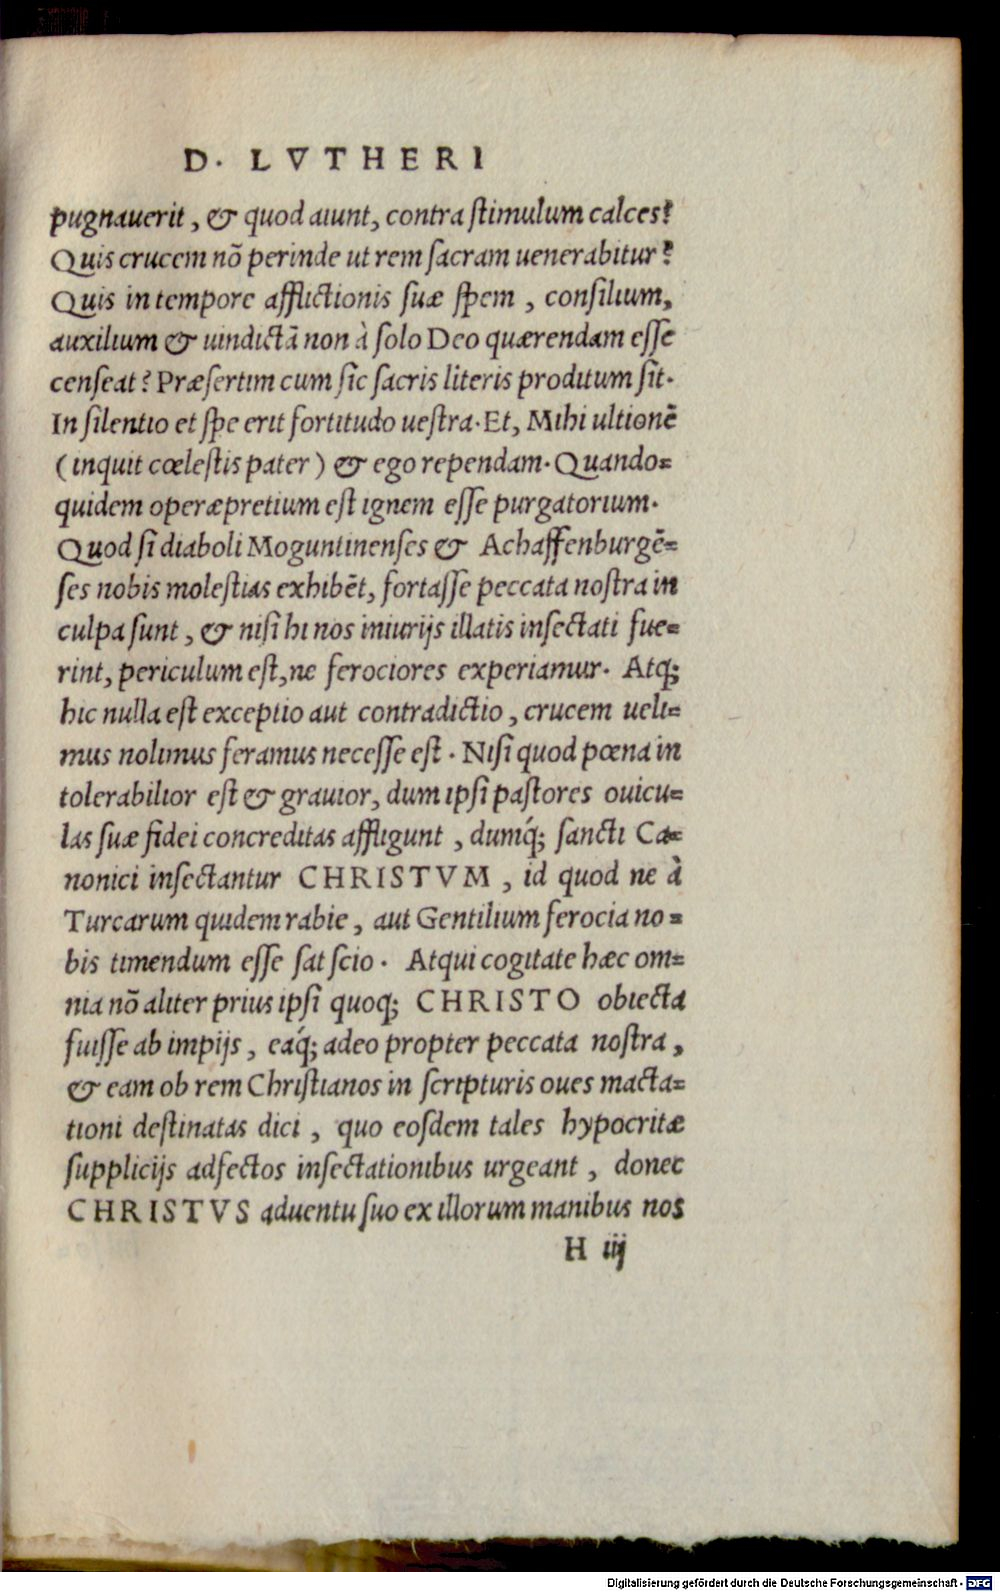 D. LVTHERI
pugnauerit, & quod aiunt, contra ſtimulum calces?
Quis crucem nõ perinde ut rem ſacram uenerabitur?
Quis in tempore afflictionis ſuæ ſpem, conſilium,
auxilium & uindictã non à ſolo Deo quærendam eſſe
cenſeat? Præſertim cum ſic ſacris literis proditum ſit.
In ſilentio et ſpe erit fortitudo ueſtra. Et, Mihi ultionẽ
(inquit cœleſtis pater) & ego rependam. Quando=
quidem operæpretium eſt ignem eſſe purgatorium.
Quod ſi diaboli Moguntinenſes & Achaffenburgẽ=
ſes nobis moleſtias exhibẽt, fortaſſe peccata noſtra in
culpa ſunt, & niſi hi nos iniurijs illatis inſectati fue=
rint, periculum eſt, ne ferociores experiamur. Atq;
hic nulla eſt exceptio aut contradictio, crucem ueli=
mus nolimus feramus neceſſe eſt. Niſi quod pœna in
tolerabilior eſt & grauior, dum ipſi paſtores ouicu=
las ſuæ fidei concreditas affligunt, dumq́; ſancti Ca=
nonici inſectantur CHRISTVM, id quod ne à
Turcarum quidem rabie, aut Gentilium ferocia no=
bis timendum eſſe ſat ſcio. Atqui cogitate hæc om=
nia nõ aliter prius ipſi quoq; CHRISTO obiecta
fuiſſe ab impijs, eaq́; adeo propter peccata noſtra,
& eam ob rem Chriſtianos in ſcripturis oues macta=
tioni deſtinatas dici, quo eoſdem tales hypocritæ
ſupplicijs adfectos inſectationibus urgeant, donec
CHRISTVS aduentu ſuo ex illorum manibus nos
H iij
Digitalisierung gefördert durch die Deutsche Forschungsgemeinschaft - DFG